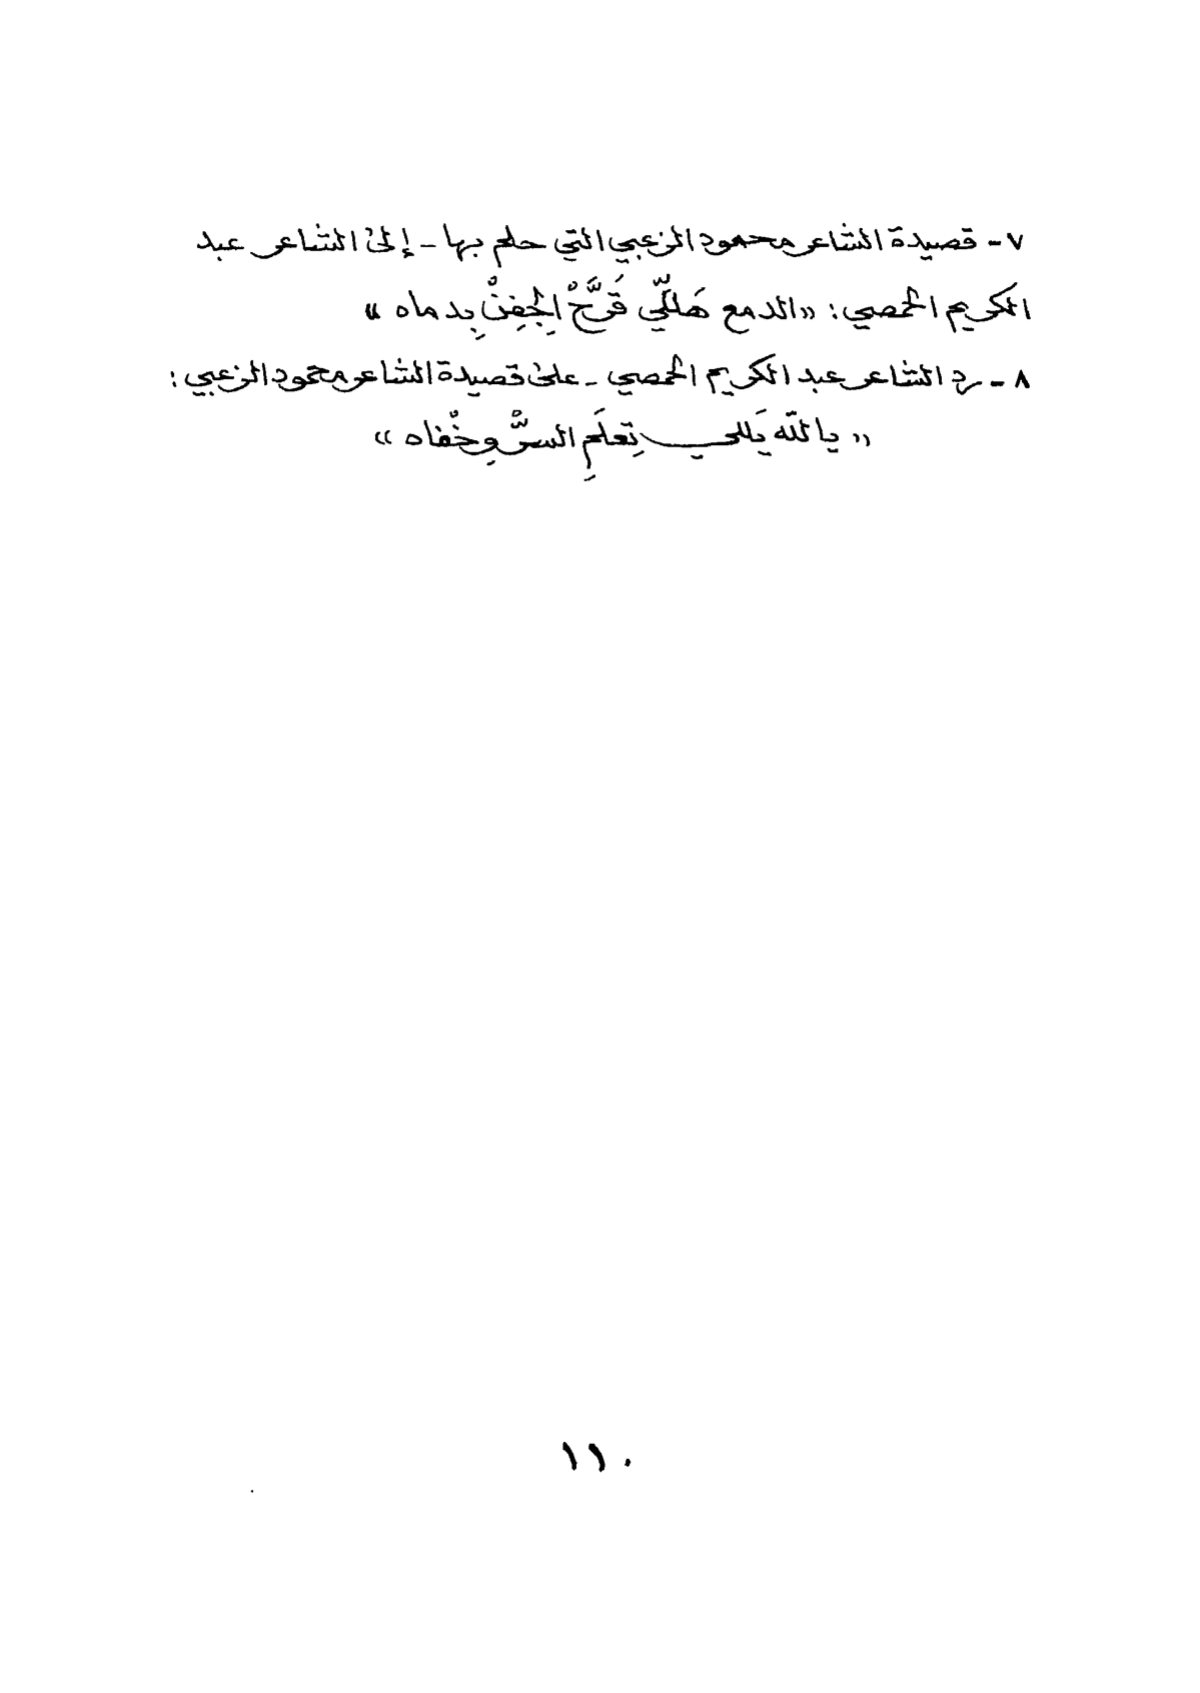 ٧- قصيدة الشاعر محمود الزعبي التي حلم بها - إلى الشاعر عبد
الكريم الحمصي: «الدمع هَللّي قَرَّحْ اِلجِفِنْ بِدماه»
٨- رد الشاعر عبد الكريم الحمصي - على قصيدة الشاعر محمود الزعبي:
«يا الله يَللي تِعلَمِ السرّْ وِخْفاه»
١١٠